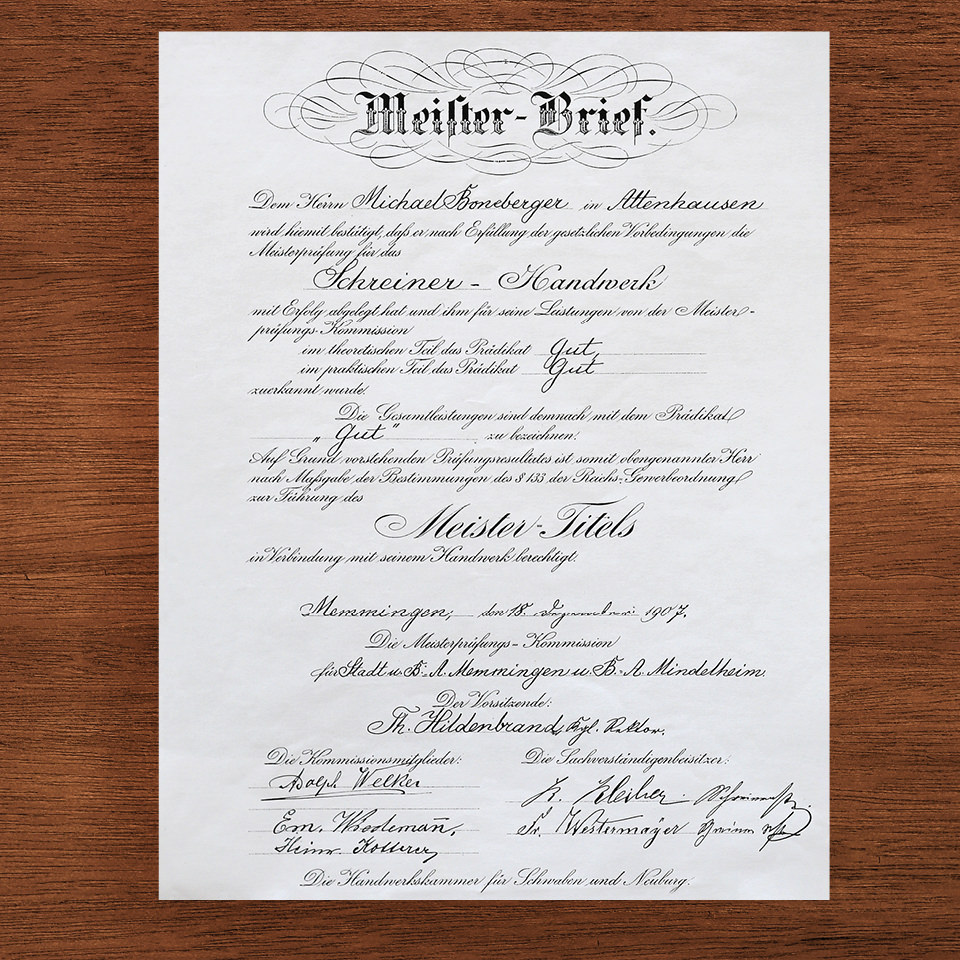 Meister-Brief.
Dem Herrn Michael Boneberger in Attenhausen
wird hiemit bestätigt, daß er nach Erfüllung der gesetzlichen Vorbedingungen die
Meisterprüfung für das
Schreiner - Handwerk
mit Erfolg abgelegt hat und ihm für seine Leistungen von der Meister-
prüfungs-Kommission
im theoretischen Teil das Prädikat gut
im praktischen Teil das Prädikat Gut
zuerkannt wurde.
Die Gesamtleistungen sind demnach mit dem Prädikat
„Gut" zu bezeichnen.
Auf Grund vorstehenden Prüfungsresultates ist somit obengenannter Herr
nach Maßgabe der Bestimmungen des § 133 der Reichs-Gewerbeordnung
zur Führung des
Meister-Titels
in Verbindung mit seinem Handwerk berechtigt.
Memmingen, den 18. Dezember 1907.
Die Meisterprüfungs-Kommission
für Stadt u. B.-A. Memmingen u. B.-A. Mindelheim.
Der Vorsitzende:
Th. Hildenbrand, Kgl. Rektor.
Die Kommissionsmitglieder: Die Sachverständigenbeisitzer:
Adolph Welker
Em. Wiedemann,
Fr. Westermayer
Heinr.
Die Handwerkskammer für Schwaben und Neuburg.